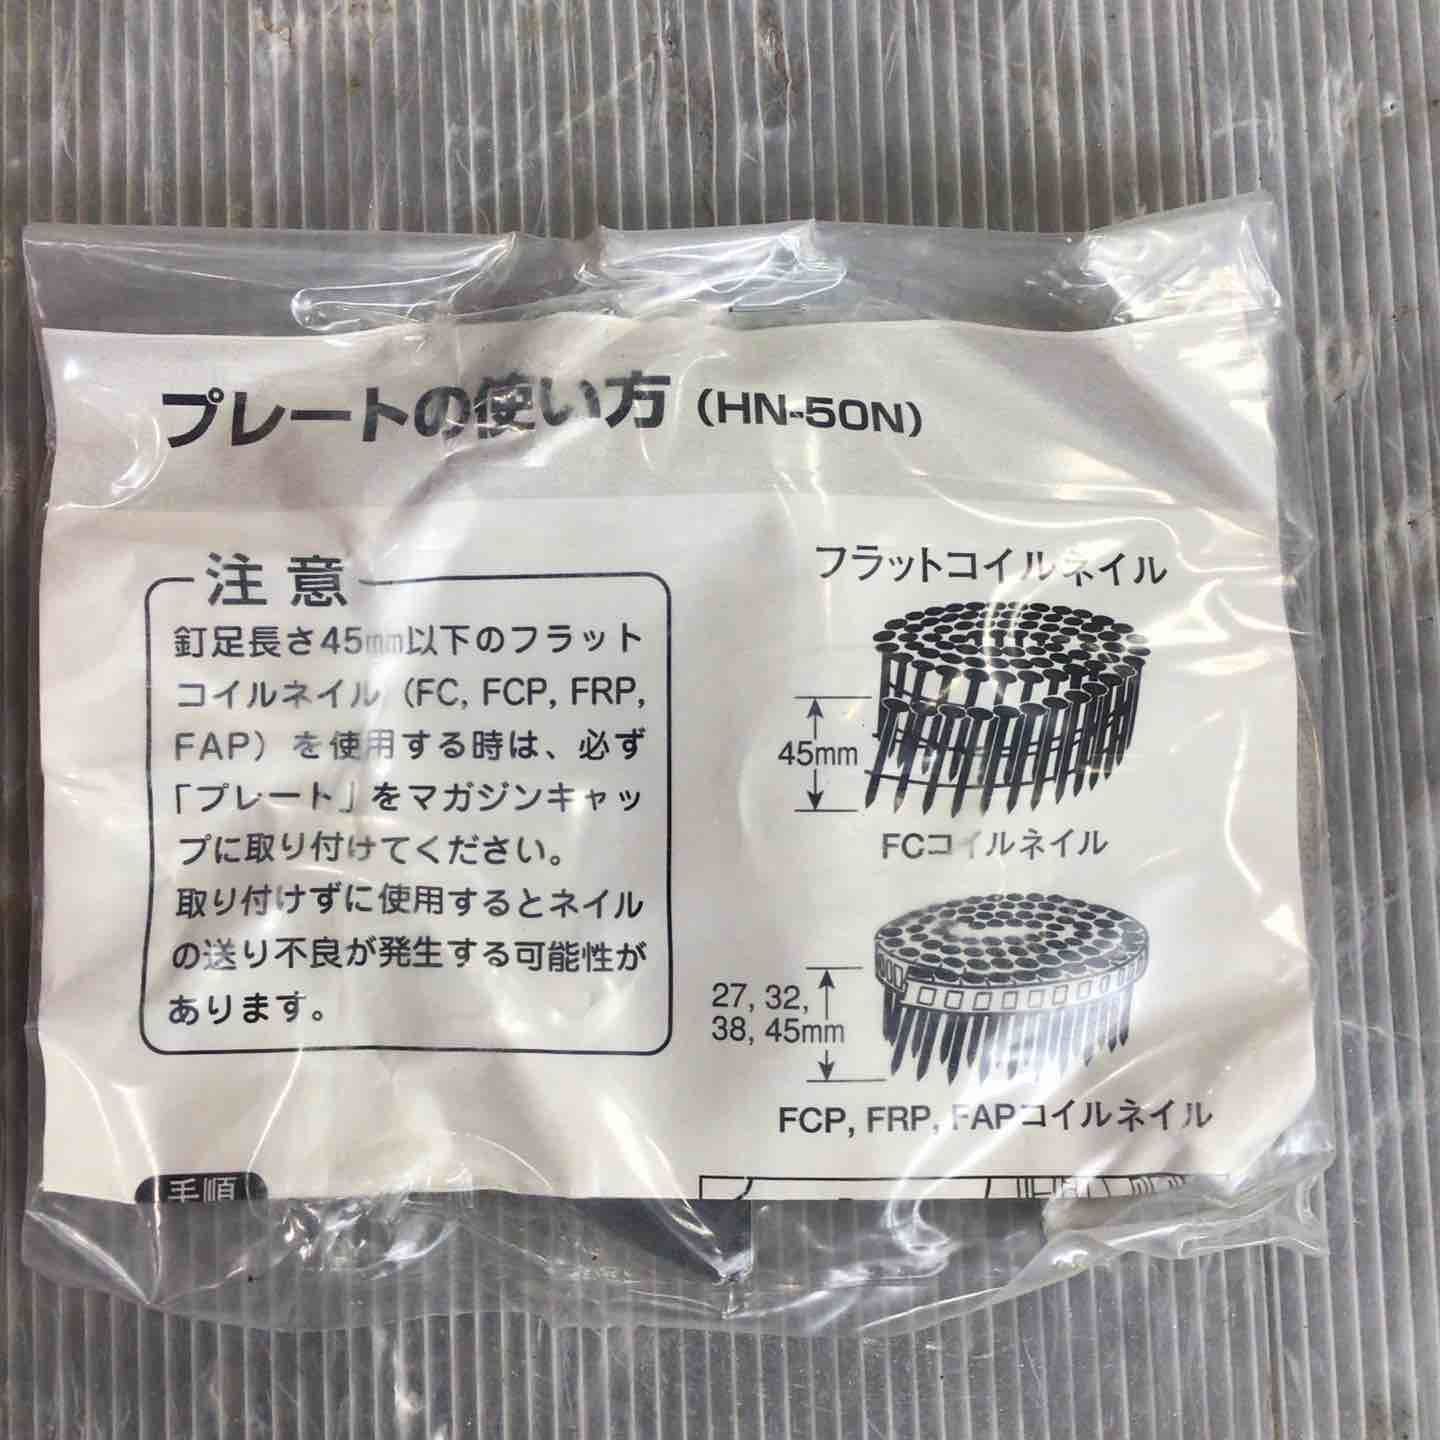 プレートの使い方（HN-50N）
注意
釘足長さ45mm以下のフラット
コイルネイル（FC, FCP, FRP,
FAP）を使用する時は、必ず
「プレート」をマガジンキャッ
プに取り付けてください。
取り付けずに使用するとネイル
の送り不良が発生する可能性が
あります。
フラットコイルネイル
45mm
FCコイルネイル
27, 32,
38, 45mm
FCP, FRP, FAPコイルネイル
手順